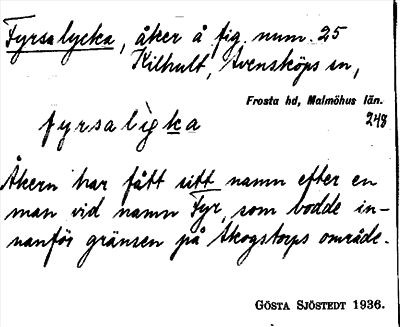 Fyrsalycka, åker å fig. num. 25
Kilhult, Svensköps sn,
Frosta hd, Malmöhus län.
248
fyrsalìgka
Åkern har fått sitt namn efter en
man vid namn Fyr, som bodde in-
nanför gränsen på Skogstorps område.
GÖSTA SJÖSTEDT 1936.